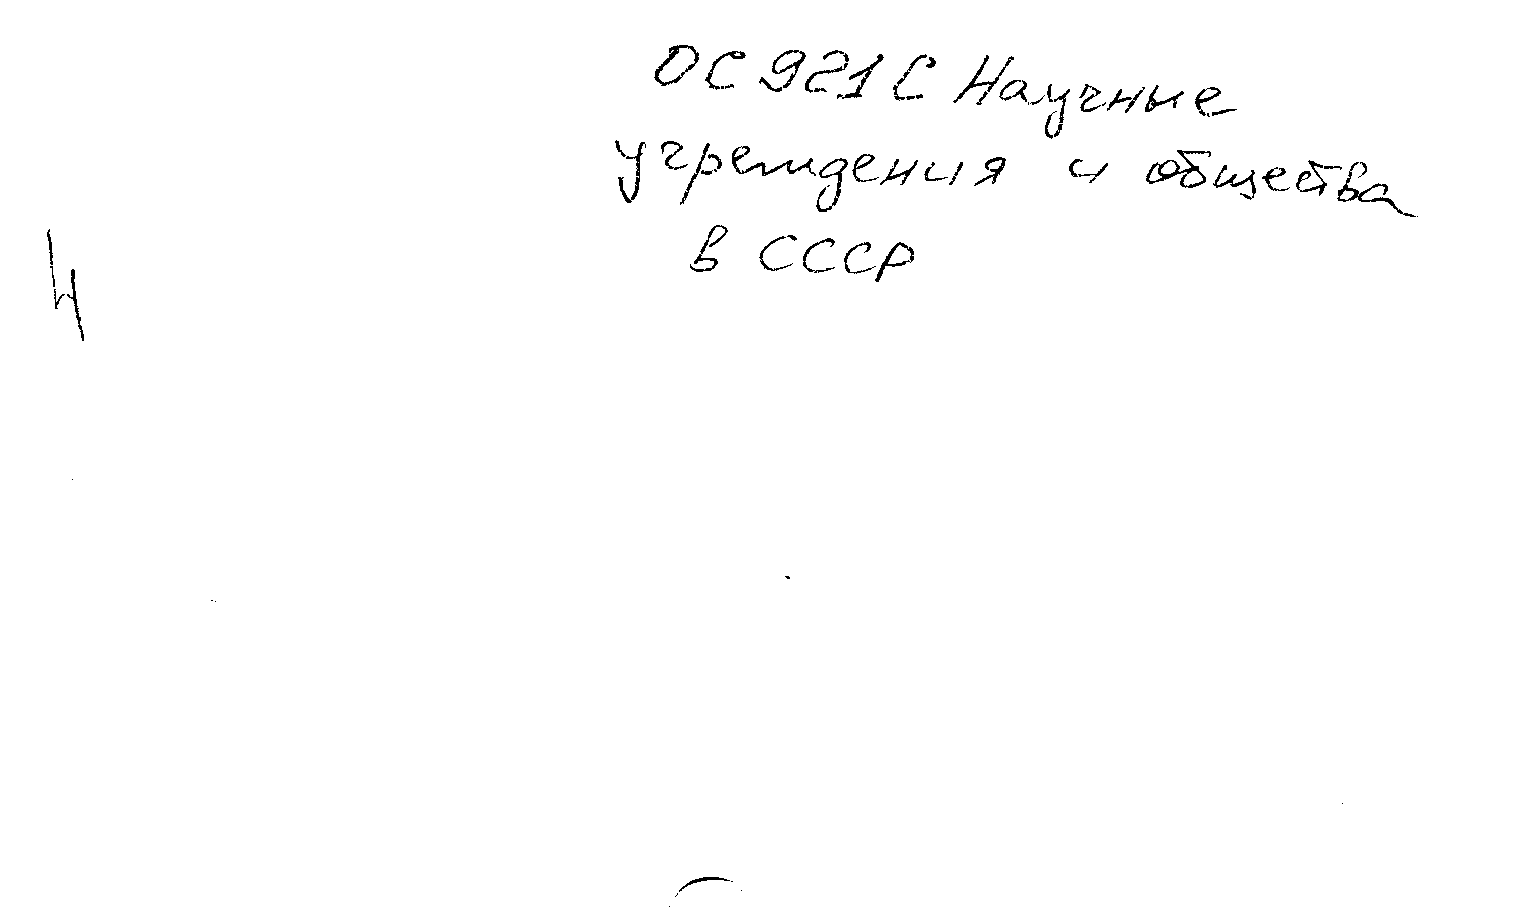 ОС 921 С Научные
учреждения и общества
в СССР
4